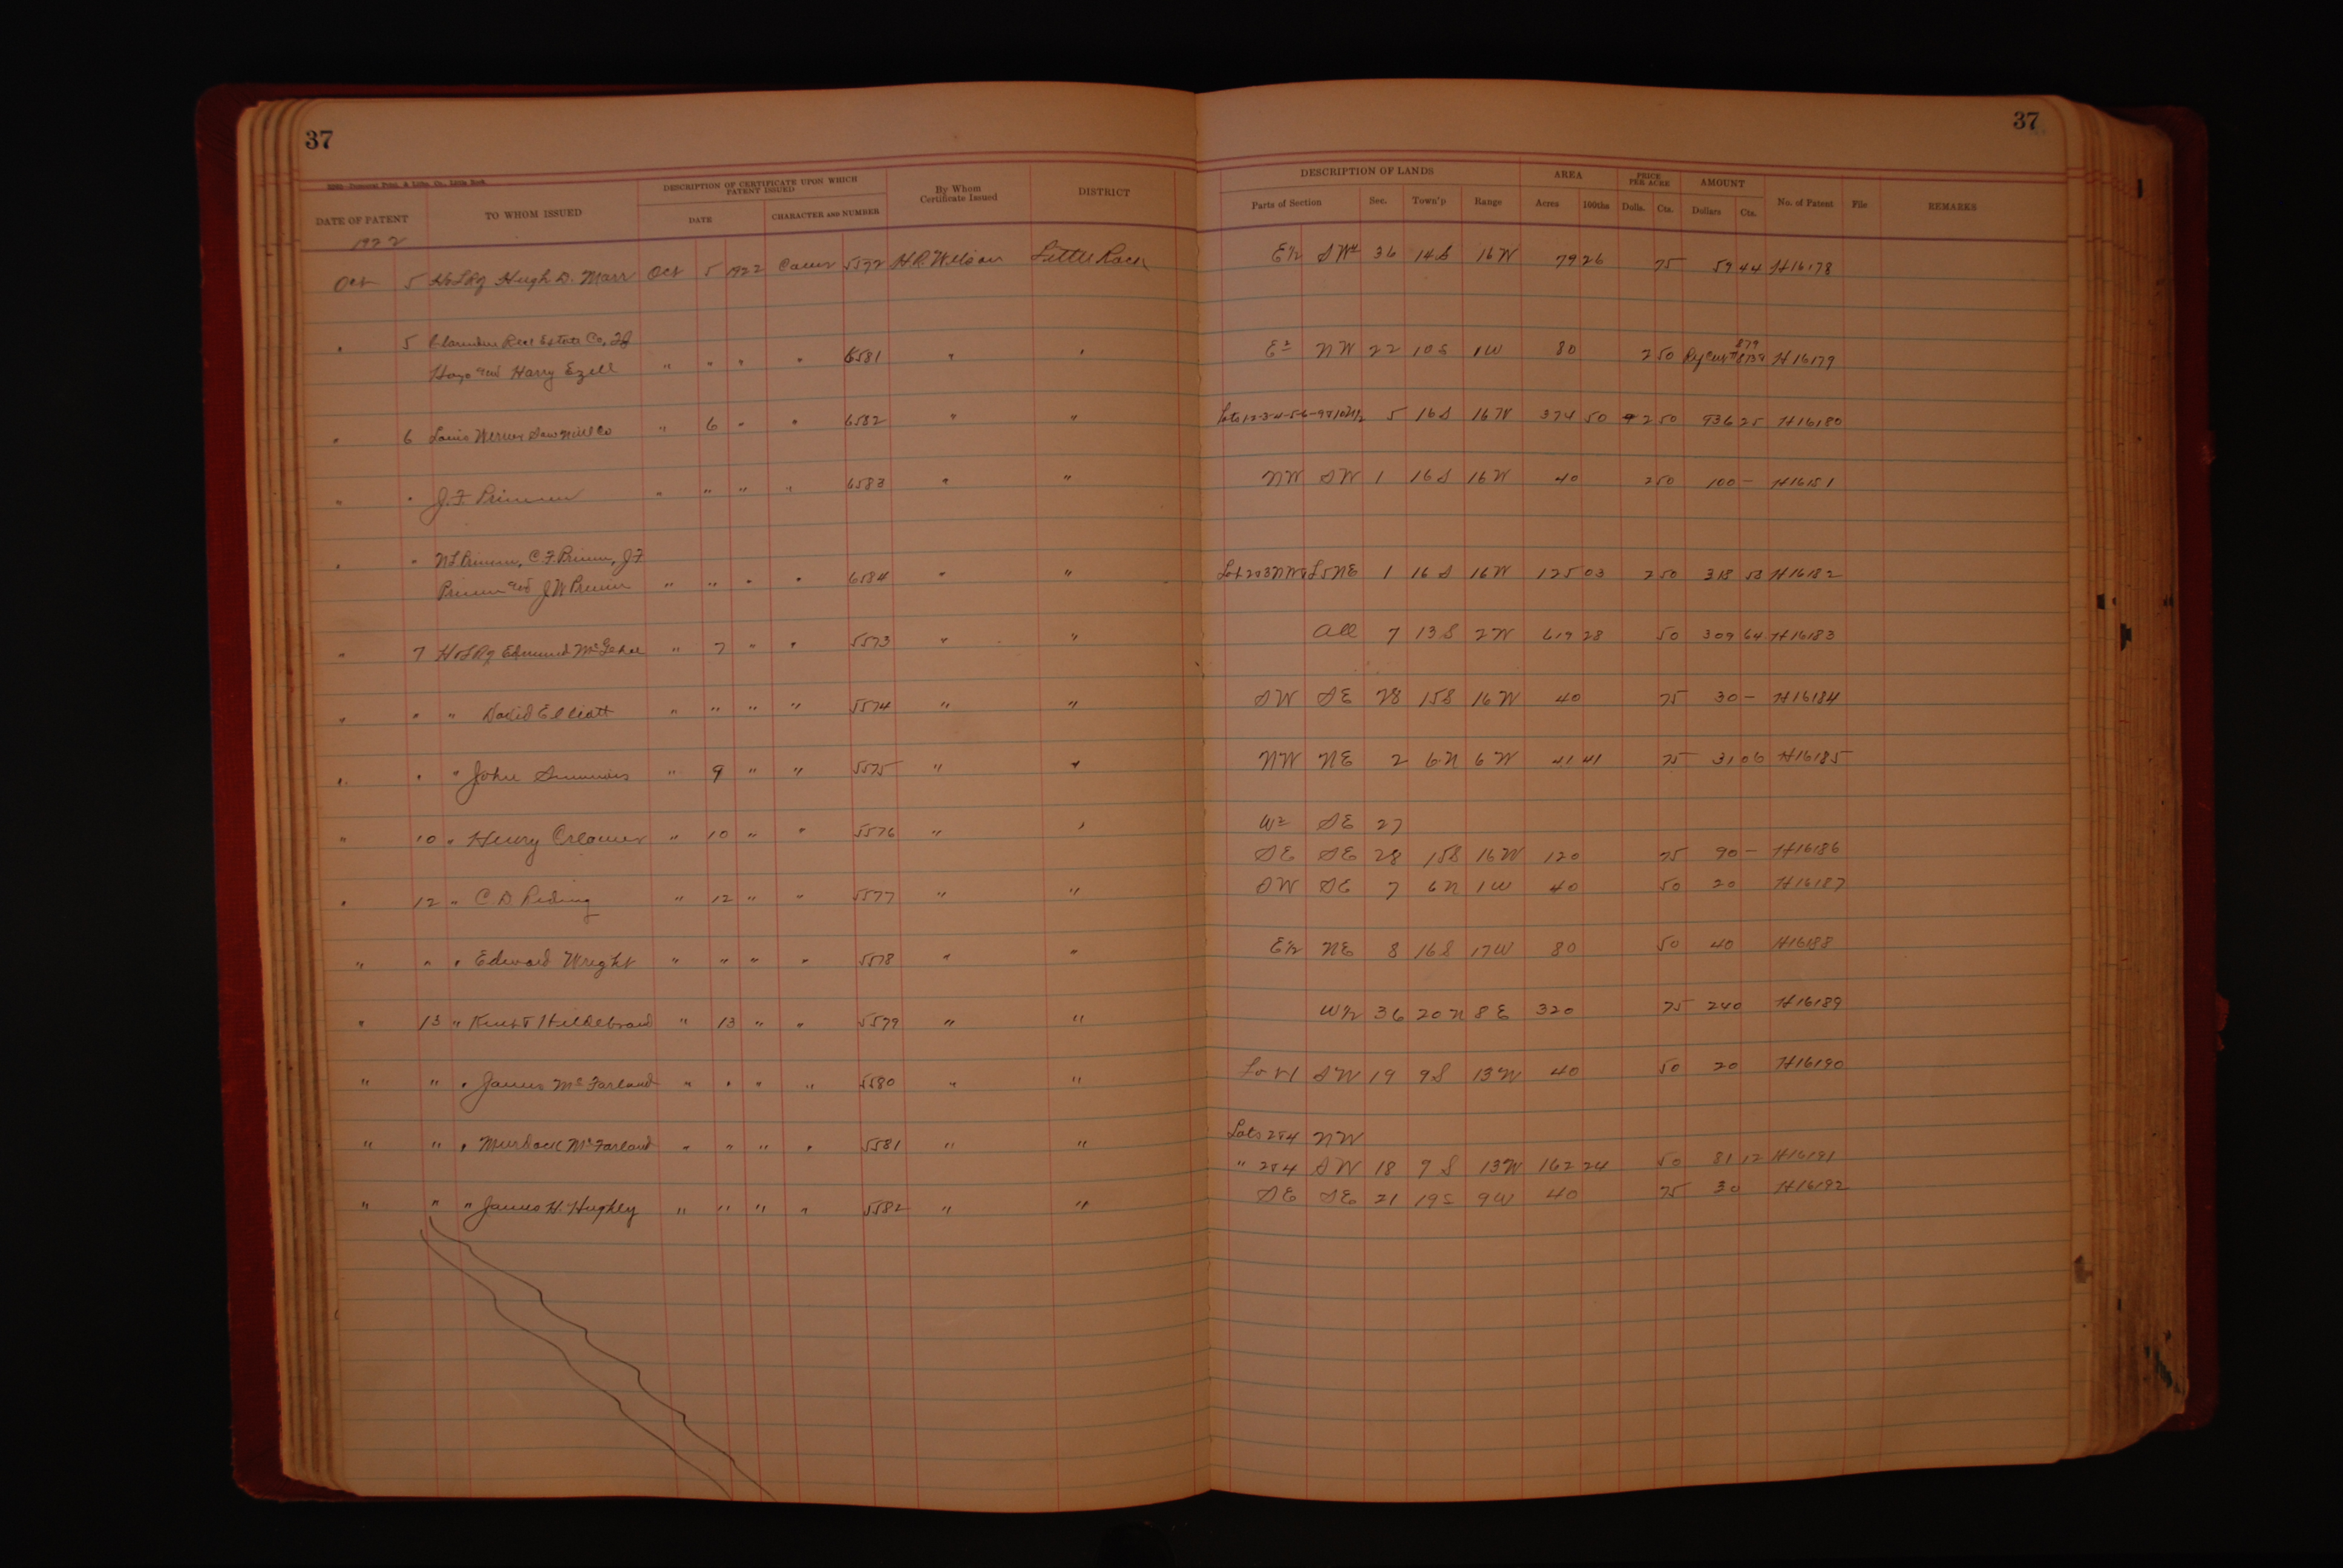 37
37
DATE OF PATENT TO WHOM ISSUED DESCRIPTION OF CERTIFICATE UPON WHICH PATENT ISSUED DATE CHARACTER AND NUMBER By Whom Certificate Issued DISTRICT DESCRIPTION OF LANDS Parts of Section Sec. Town'p Range AREA Acres 100ths PRICE PER ACRE Dolls. Cts. AMOUNT Dollars Cts. No. of Patent File REMARKS
1922
Oct 5 Hugh D. Marr Oct 5 1922 5572 H R Wilson Little Rock E½ SW 36 14 S 16 W 79 26 75 59 44 H16178
" 5 Real Estate Co,
and Harry Ezell " " " " 6581 " " E2 NW 22 10 S 1 W 80 2 50 H16179
" 6 Louis Werner Saw Mill Co " 6 " " 6582 " " 5 16 S 16 W 374 50 2 50 936 25 H16180
" " J. F. Primm " " " " 6583 " " NW SW 1 16 S 16 W 40 2 50 100 – H16181
" " N L Primm, C. F. Primm, J. F
Primm and J W Primm " " " " 6584 " " 1 16 S 16 W 125 03 2 50 318 53 H16182
" 7 Edmund McGehee " 7 " " 5573 " " All 7 13 S 2 W 619 28 50 309 64 H16183
" " " David Elliott " " " " 5574 " " SW SE 28 15 S 16 W 40 75 30 – H16184
" " " John Simmons " 9 " " 5575 " " NW NE 2 6 N 6 W 41 41 75 31 06 H16185
" 10 " Henry Creamer " 10 " " 5576 " " W2 SE 27
SE SE 28 15 S 16 W 120 75 90 – H16186
" 12 " C. D. Reding " 12 " " 5577 " " SW SE 7 6 N 1 W 40 50 20 H16187
" " " Edward Wright " " " " 5578 " " E½ NE 8 16 S 17 W 80 50 40 H16188
" 13 " Hildebrand " 13 " " 5579 " " W½ 36 20 N 8 E 320 75 240 H16189
" " " James McFarland " " " " 5580 " " Lot 1 SW 19 9 S 13 W 40 50 20 H16190
" " " Murdock McFarland " " " " 5581 " " Lots 2 & 4 NW
" 2 & 4 SW 18 9 S 13 W 162 24 50 81 12 H16191
" " " James H. Hughey " " " " 5582 " " SE SE 21 19 S 9 W 40 75 30 H16192